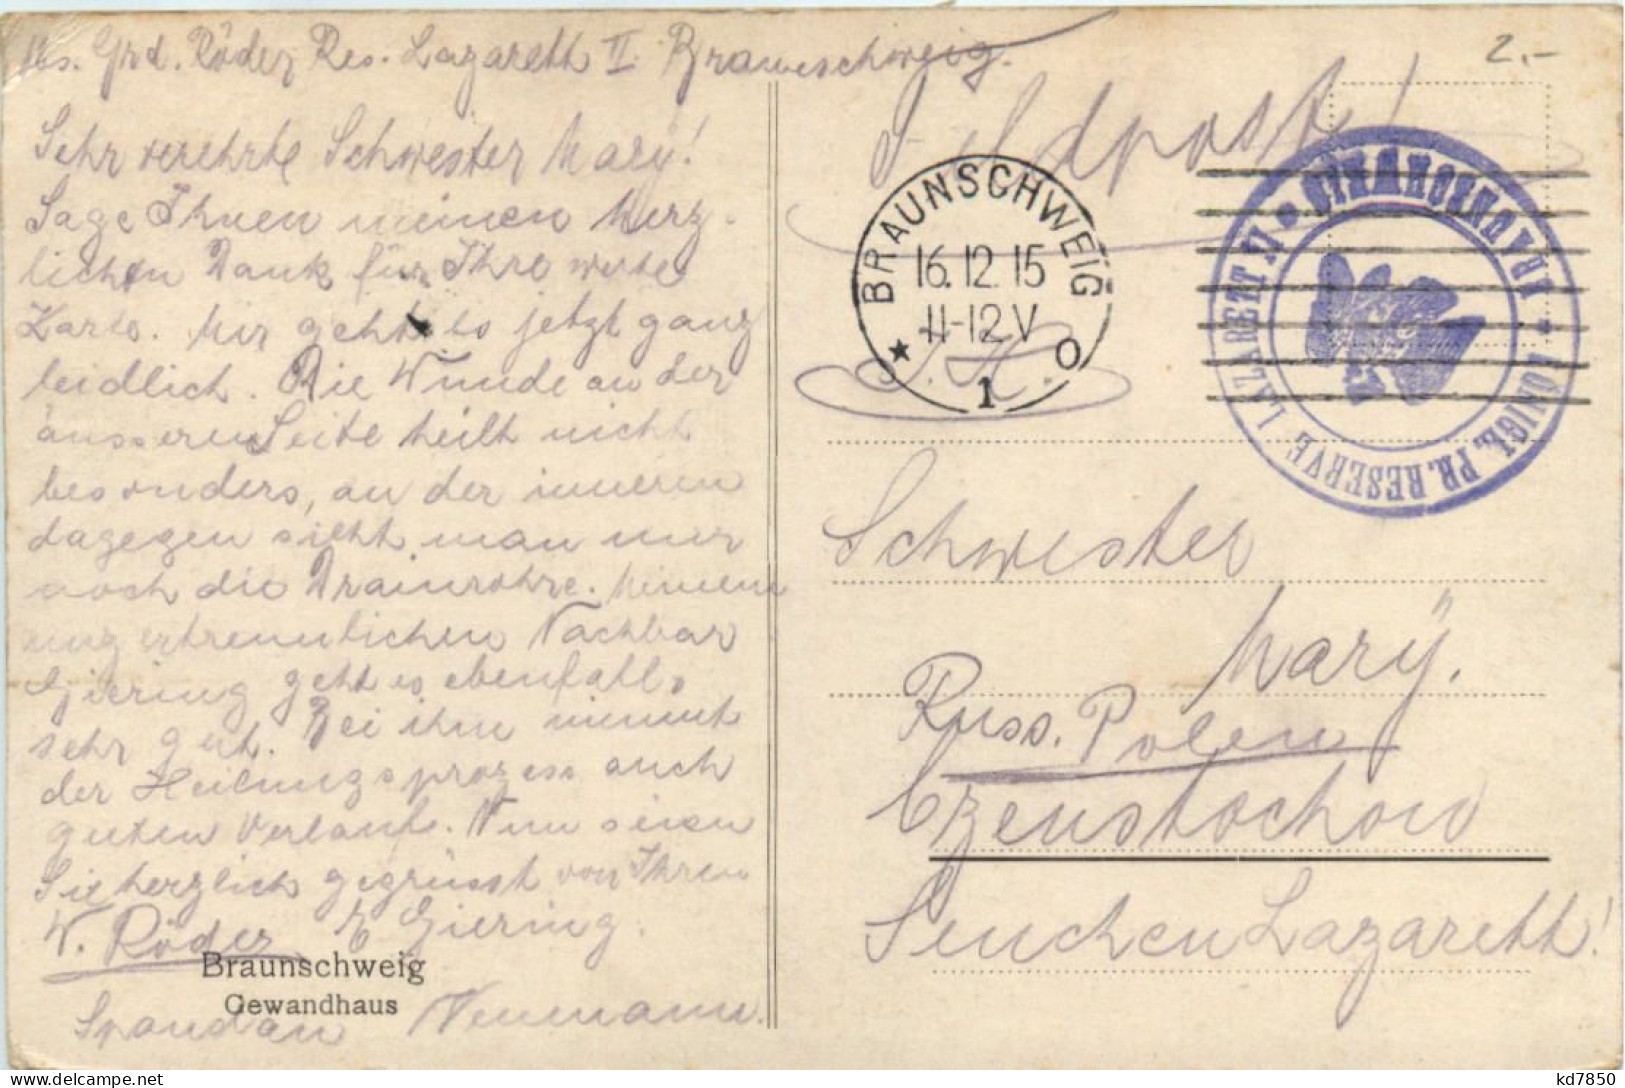 Abs. Grd. Röder Res. Lazareth II Braunschweig.
2.-
Sehr verehrte Schwester Mary!
Sage Ihnen meinen herz-
lichen Dank für Ihre werte
Karte. Mir geht es jetzt ganz
leidlich. Die Wunde an der
äusseren Seite heilt nicht
besonders, an der inneren
dagegen sieht man nur
noch die Drainrohre. Meinem
unzertrennlichen Nachbar
Giering geht es ebenfalls
sehr gut. Bei ihm nimmt
der Heilungsprozess auch
guten Verlauf. Nun seien
Sie herzlich gegrüsst von Ihren
W. Röder E. Giering.
Braunschweig
Gewandhaus
Spandau Neumann.
Feldpost!
BRAUNSCHWEIG
16.12.15
11-12 V
* 1 o
KÖNIGL. PR. RESERVE LAZARETT II
BRAUNSCHWEIG
S.B.
Schwester
Marÿ.
Russ. Polen
Czenstochow
Seuchen Lazareth!
kd7850